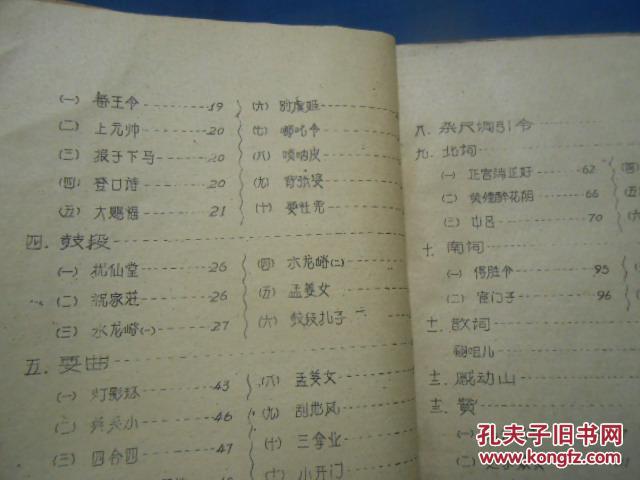 (一) 番王令 19
(二) 上元帅 20
(三) 报子下马 20
(四) 登口诗 20
(五) 大赐福 21
(六) 别虞姬
(七) 哪吒令
(八) 唢呐皮
(十) 耍性儿
四. 鼓段
(一) 26
(二) 祝家莊 26
(三) 水龙吟(一) 27
(四) 水龙吟(二)
(五) 孟姜女
(六) 鼓段扎子
五. 耍曲
(一) 灯影环 43
(二) 46
(三) 四合四 47
(八) 孟姜女
(九) 刮地风
(十) 三拿业
小开门
八. 杂尺调引令
九. 北词
(一) 正宫端正好 62
(二) 黄煙醉花阴 66
(三) 中吕 70
十. 南词
(一) 得胜令 95
(二) 宫门子 96
十一. 散词
翎咀儿
十二. 感动山
十三. 赞
(一)
(二)
孔夫子旧书网
www.kongfz.com